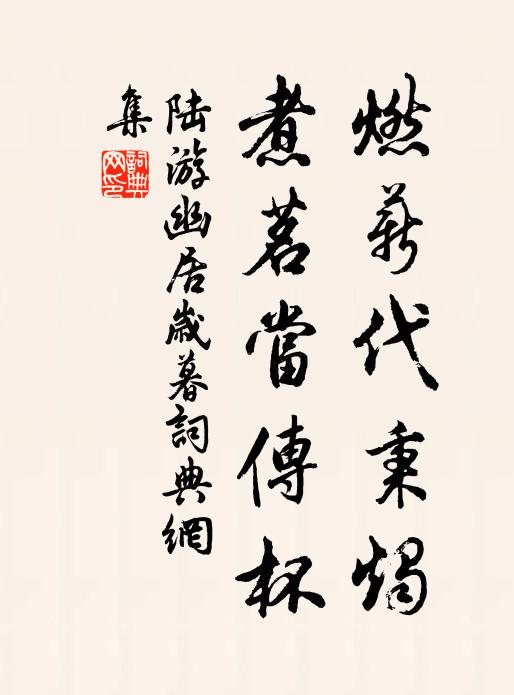 燃薪代秉燭
煮茗當傳杯
陆游幽居歲暮詞典網
集
詞典
网印